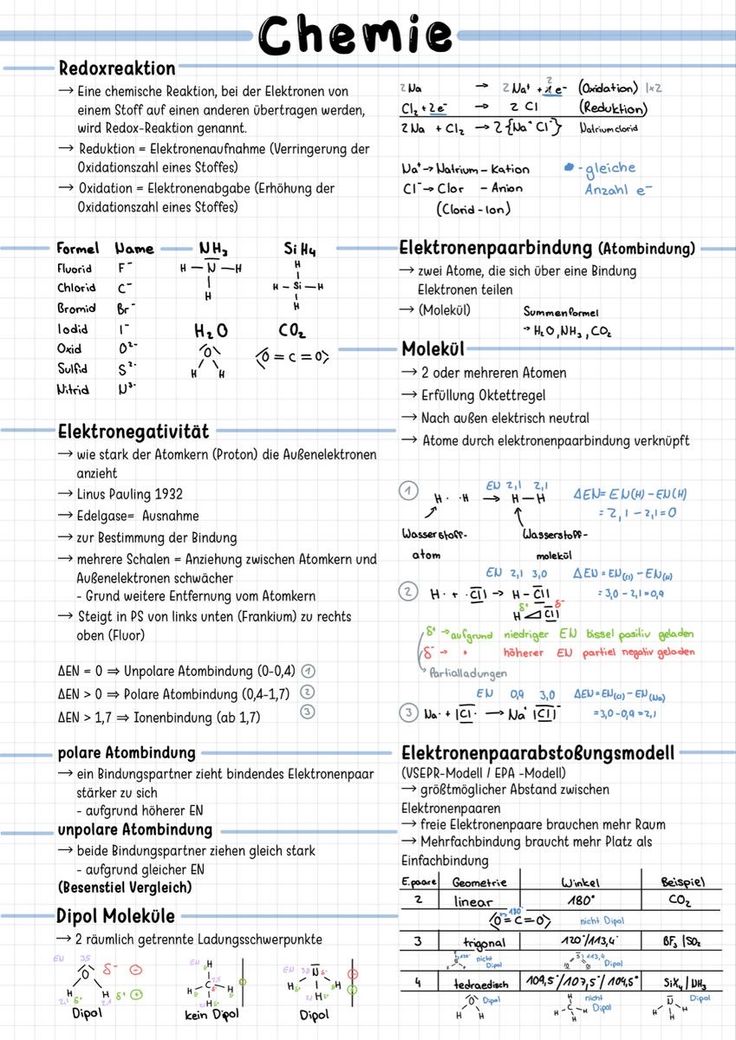 Chemie
Redoxreaktion
→ Eine chemische Reaktion, bei der Elektronen von
einem Stoff auf einen anderen übertragen werden,
wird Redox-Reaktion genannt.
→ Reduktion = Elektronenaufnahme (Verringerung der
Oxidationszahl eines Stoffes)
→ Oxidation = Elektronenabgabe (Erhöhung der
Oxidationszahl eines Stoffes)
2 Na → 2 Na⁺ + 2e⁻ (Oxidation) |x2
Cl₂ + 2e⁻ → 2 Cl (Reduktion)
2 Na + Cl₂ → 2 {Na⁺ Cl⁻} Natriumclorid
Na⁺ → Natrium - Kation
Cl⁻ → Clor - Anion
(Clorid-Ion)
- gleiche
Anzahl e⁻
Formel Name
Fluorid F⁻
Chlorid C⁻
Bromid Br⁻
Iodid I⁻
Oxid O²⁻
Sulfid S²⁻
Nitrid N³⁻
NH₃
H — N — H
H
SiH₄
H
H — Si — H
H
H₂O
O
H H
CO₂
O = C = O
Elektronenpaarbindung (Atombindung)
→ zwei Atome, die sich über eine Bindung
Elektronen teilen
→ (Molekül)
Summenformel
→ H₂O, NH₃, CO₂
Molekül
→ 2 oder mehreren Atomen
→ Erfüllung Oktettregel
→ Nach außen elektrisch neutral
→ Atome durch elektronenpaarbindung verknüpft
Elektronegativität
→ wie stark der Atomkern (Proton) die Außenelektronen
anzieht
→ Linus Pauling 1932
→ Edelgase= Ausnahme
→ zur Bestimmung der Bindung
→ mehrere Schalen = Anziehung zwischen Atomkern und
Außenelektronen schwächer
- Grund weitere Entfernung vom Atomkern
→ Steigt in PS von links unten (Frankium) zu rechts
oben (Fluor)
ΔEN = 0 ⇒ Unpolare Atombindung (0-0,4) ①
ΔEN > 0 ⇒ Polare Atombindung (0,4-1,7) ②
ΔEN > 1,7 ⇒ Ionenbindung (ab 1,7) ③
EN 2,1 2,1
① H· ·H → H—H ΔEN= EN(H) - EN(H)
= 2,1 - 2,1 = 0
Wasserstoff-
atom
Wasserstoff-
molekül
EN 2,1 3,0 ΔEN = EN(Cl) - EN(H)
② H· + ·Cl| → H - Cl| = 3,0 - 2,1 = 0,9
δ⁺ δ⁻
H Cl|
δ⁺ → aufgrund niedriger EN bissel positiv geladen
δ⁻ → " höherer EN partiel negativ geladen
Partialladungen
EN 0,9 3,0 ΔEN = EN(Cl) - EN(Na)
③ Na· + |Cl· → Na⁺ |Cl|⁻ = 3,0 - 0,9 = 2,1
polare Atombindung
→ ein Bindungspartner zieht bindendes Elektronenpaar
stärker zu sich
- aufgrund höherer EN
unpolare Atombindung
→ beide Bindungspartner ziehen gleich stark
- aufgrund gleicher EN
(Besenstiel Vergleich)
Dipol Moleküle
→ 2 räumlich getrennte Ladungsschwerpunkte
EN 3,5
O δ⁻ ⊖
2,1 H H δ⁺ ⊕
Dipol
EN H
H - C - H
H
kein Dipol
EN 3,0
N
H H H
Dipol
Elektronenpaarabstoßungsmodell
(VSEPR-Modell / EPA -Modell)
→ größtmöglicher Abstand zwischen
Elektronenpaaren
→ freie Elektronenpaare brauchen mehr Raum
→ Mehrfachbindung braucht mehr Platz als
Einfachbindung
E.paare Geometrie Winkel Beispiel
2 linear 180° CO₂
O = C = O 180 nicht Dipol
3 trigonal 120°/113,4° BF₃ | SO₂
nicht Dipol
Dipol
4 tedraedisch 109,5°/107,5°/104,5° SiX₄ | NH₃
O H H Dipol
H C H H H nicht Dipol
N H H H Dipol